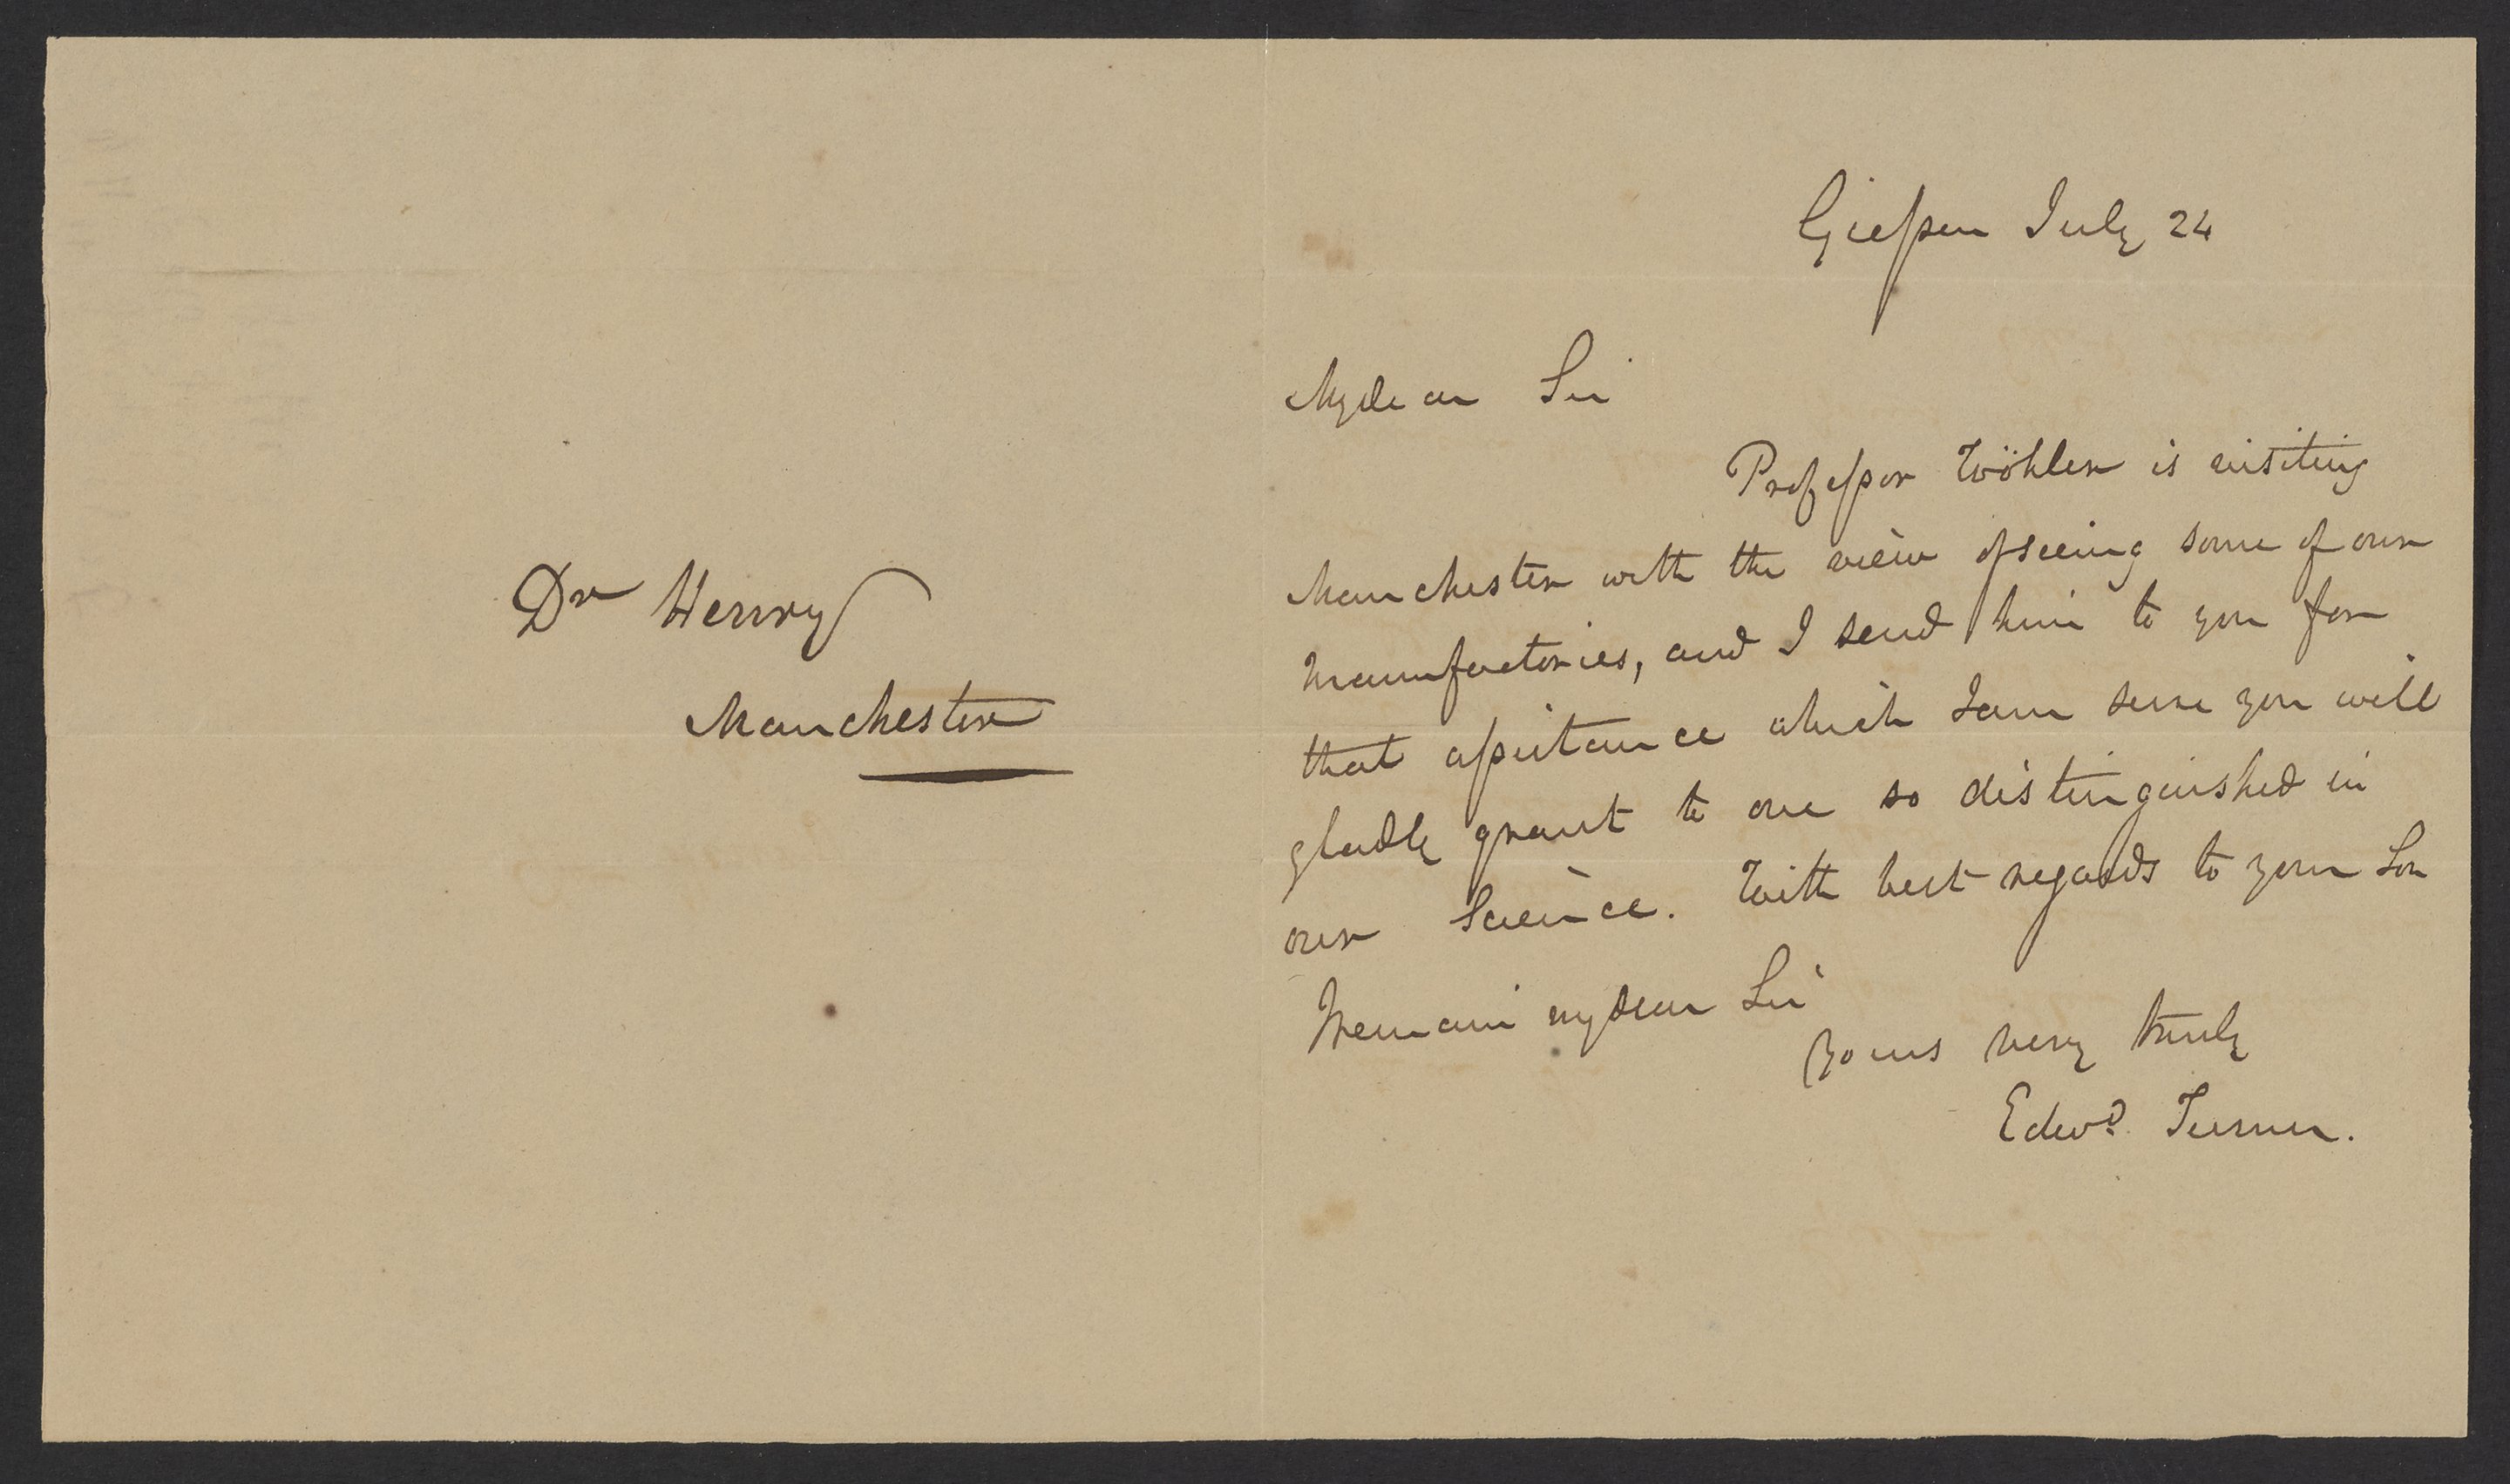 Dr Henry
Manchester
Giessen July 24
My dear Sir
Professor Wöhler is visiting
Manchester with the view of seeing some of our
manufactories, and I send him to you for
that assistance which I am sure you will
gladly grant to one so distinguished in
our Science. With best regards to your Son
I remain my dear Sir
Yours very truly
Edwd. Turner.